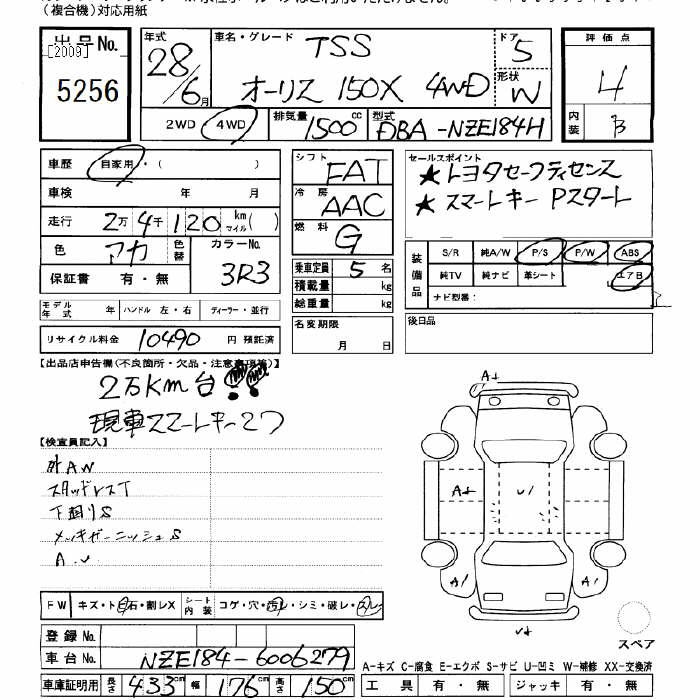 (複合機)対応用紙
出品No.
[2009]
5256
年式
28/6月
車名・グレード TSS
オーリス 150X 4WD
ドア 5
形状 W
2WD 4WD
排気量 1500cc
型式 DBA-NZE184H
評価点
4
内装 B
車歴 自家用・( )
車検 年 月
走行 2万4千120km マイル( )
色 アカ 色替
カラーNo. 3R3
保証書 有・無
モデル年式 年 ハンドル 左・右 ディーラー・並行
リサイクル料金 10490 円 預託済
シフト FAT
冷房 AAC
燃料 G
乗車定員 5 名
積載量 kg
総重量 kg
名変期限
月 日
セールスポイント
★トヨタセーフティセンス
★スマートキー Pスタート
装備品
S/R 純A/W P/S P/W ABS
純TV 純ナビ 革シート エアB
ナビ型番:
後日品
【出品店申告欄(不良箇所・欠品・注意事項等)】
2万Km台!!
現車スマートキー2ツ
【検査員記入】
外AW
スタッドレスT
下廻りS
メッキガーニッシュS
A.U
FW キズ・ト石・割レX シート内装 コゲ・穴・汚レ・シミ・破レ・スレ
登録No.
車台No. NZE184-6006279
車庫証明用 長さ 433cm 幅 176cm 高さ 150cm
A+
A+
U1
A1
A1
U+
スペア
A-キズ C-腐食 E-エクボ S-サビ U-凹ミ W-補修 XX-交換済
工具 有・無 ジャッキ 有・無